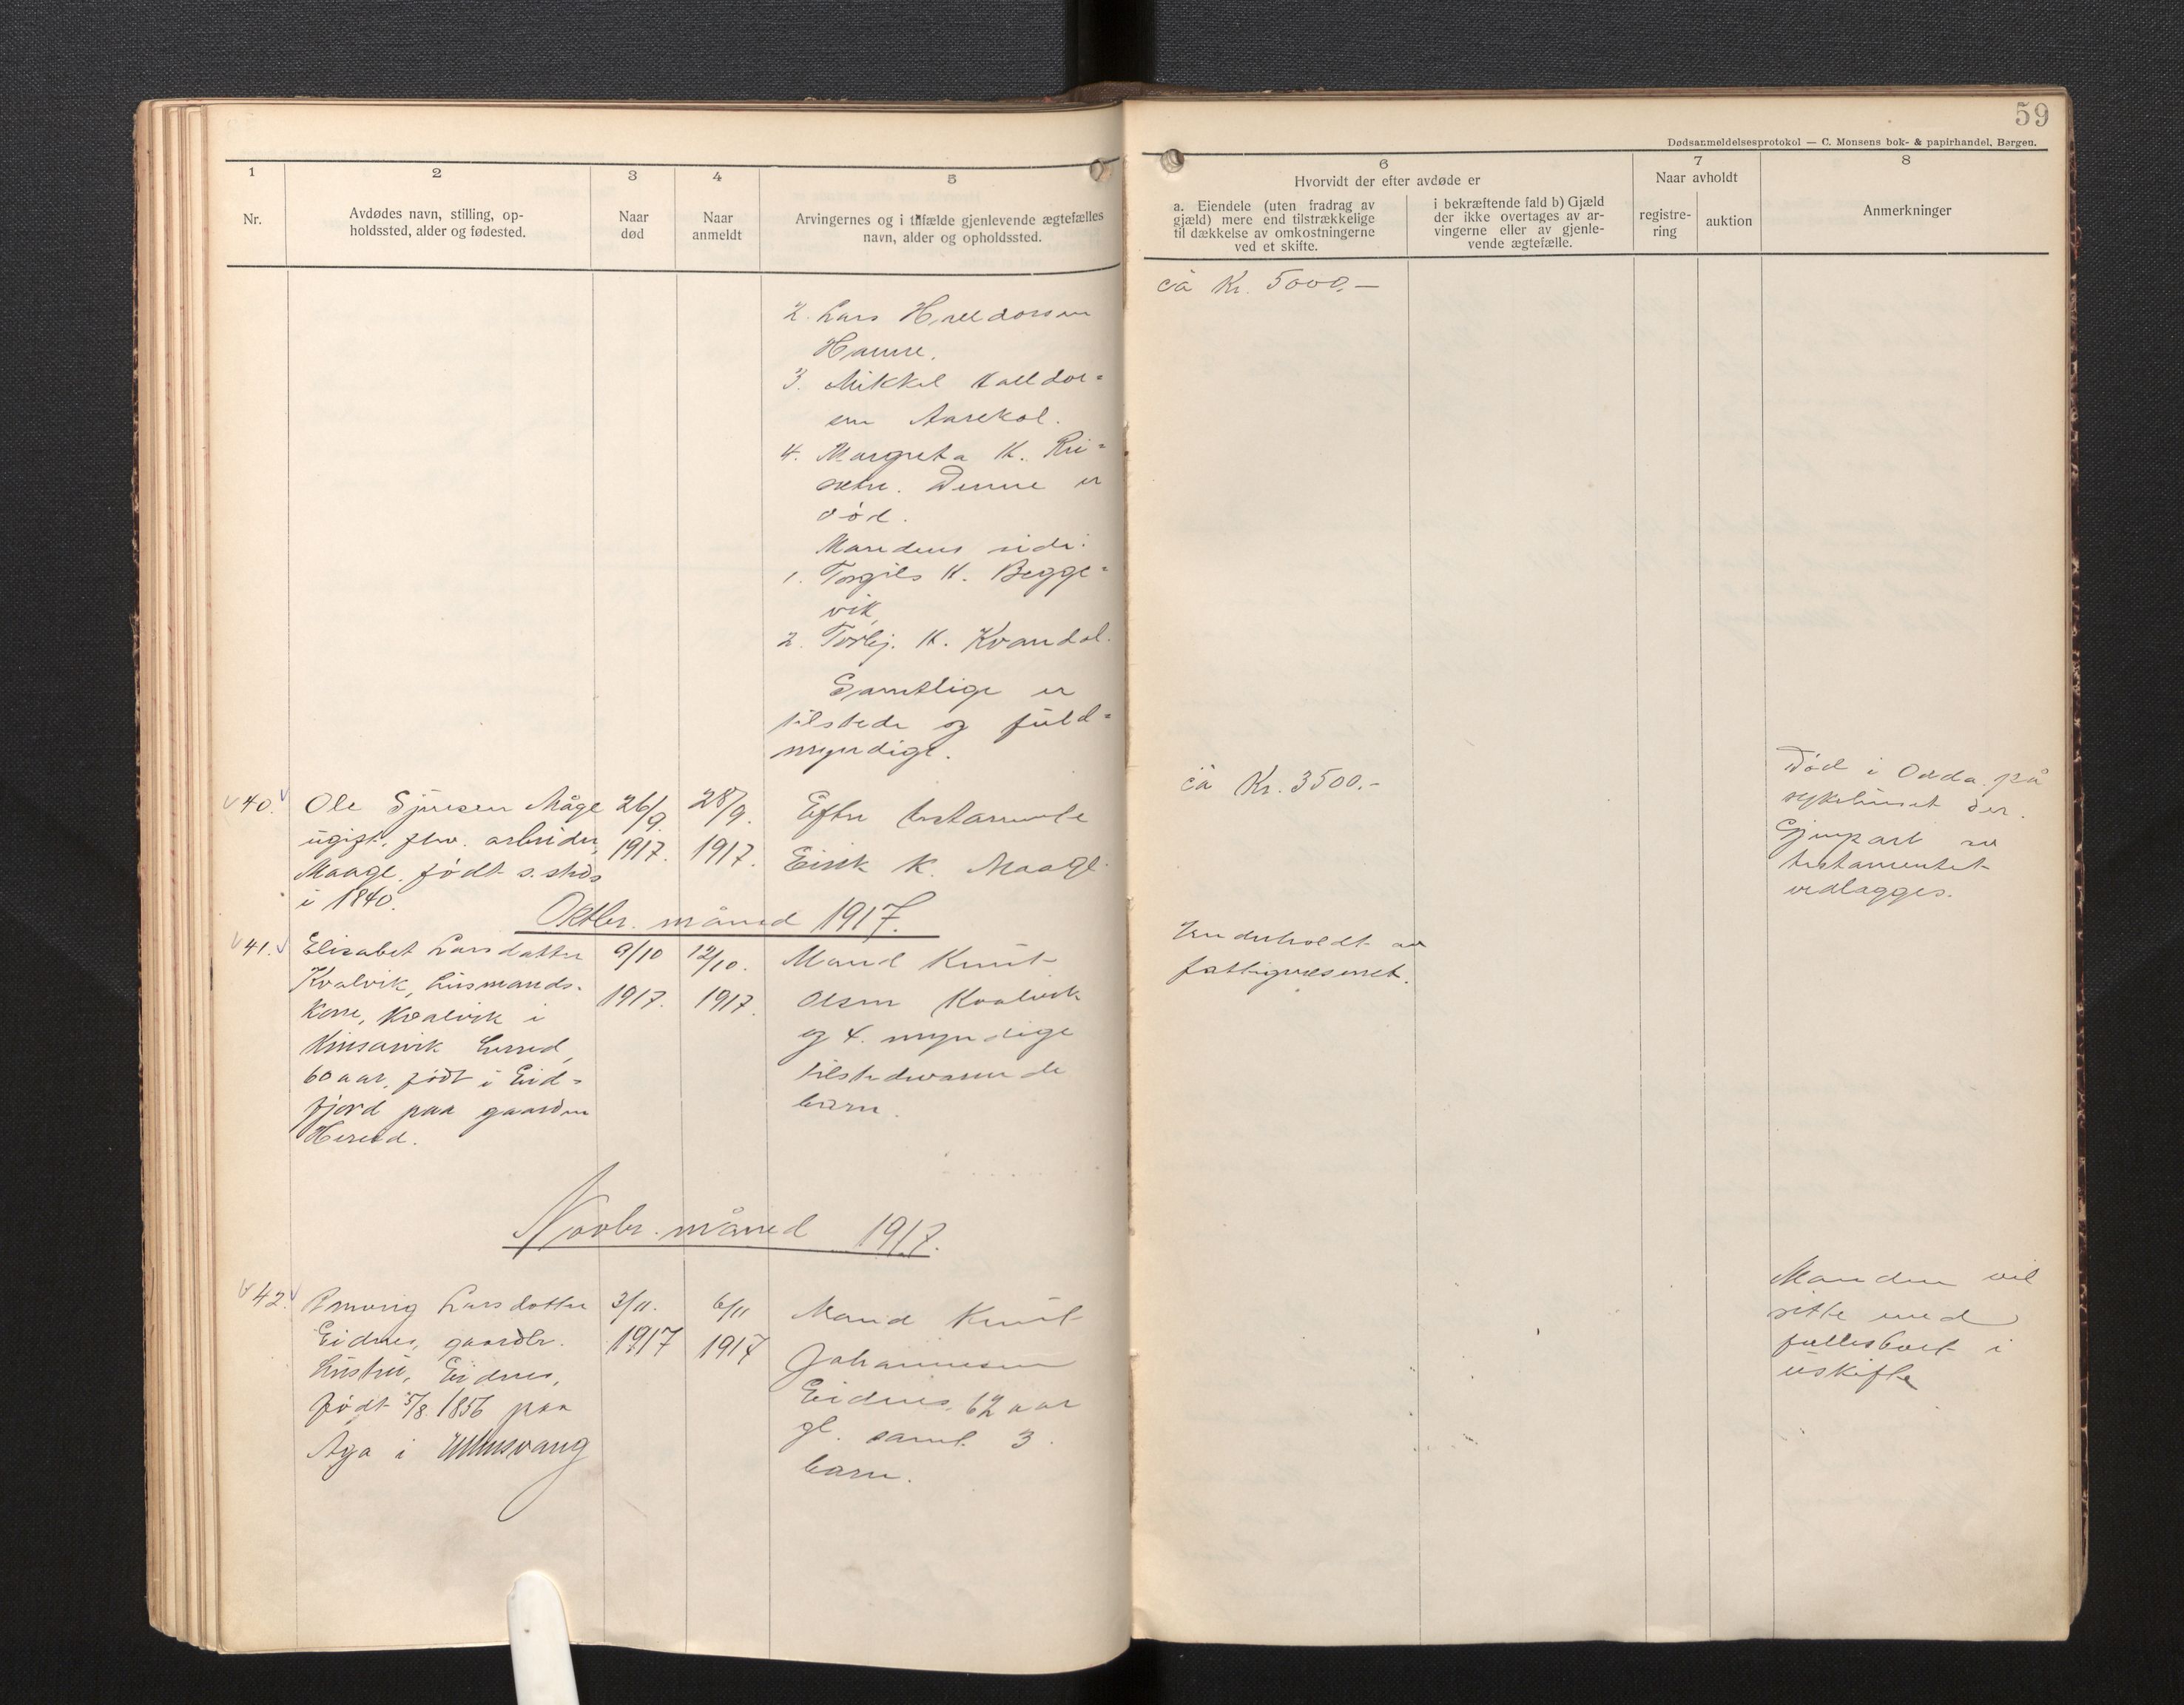 59
Dødsanmeldelsesprotokol — C. Monsens bok- & papirhandel, Bergen.
1
2
3
4
5
6
7
8
Nr.
Avdødes navn, stilling, op-
holdssted, alder og fødested.
Naar
død
Naar
anmeldt
Arvingernes og i tilfælde gjenlevende ægtefælles
navn, alder og opholdssted.
Hvorvidt der efter avdøde er
a. Eiendele (uten fradrag av
gjæld) mere end tilstrækkelige
til dækkelse av omkostningerne
ved et skifte.
i bekræftende fald b) Gjæld
der ikke overtages av ar-
vingerne eller av gjenle-
vende ægtefælle.
Naar avholdt
registre-
ring
auktion
Anmerkninger
2. Lars Halldorsen
Hamre.
3. Mikkel Halldor=
sen
4. Margreta H. Ri=
sætre. Denne er
død.
Mandens side:
1. Torgils H. Begge=
vik
2. Torbj. H. Kvandal.
Samtlige er
tilstede og fuld=
myndige.
ca Kr. 5000.—
40.
Ole Sjursen Måge
ugift, fhv. arbeider,
Maage, født s. steds
i 1840.
26/9.
1917.
28/9.
1917.
Efter testamente
Eirik K. Maage.
ca Kr. 3500.-
Død i Odda på
sykehuset der.
Gjenpart av
testamentet
vedlægges.
Oktbr. måned 1917.
41.
Elisabet Larsdatter
Kvalvik, husmands-
kone, Kvalvik i
Kinsarvik herred,
60 aar, født i Eid=
fjord paa gaarden
Hereid.
9/10
1917.
12/10.
1917.
Mand Knut
Olsen Kvalvik
og 4. myndige
tilstedeværende
barn.
Underholdt av
fattigvæsenet.
Novbr. måned 1917.
42.
Larsdatter
Eidnes, gaardbr.
hustru, Eidnes,
født 5/8. 1856 paa
Aga i Ullensvang
3/11.
1917
6/11
1917
Mand Knut
Johannesen
Eidnes, 62 aar
gl. samt 3
barn.
Manden vil
sitte med
fællesboet i
uskifte